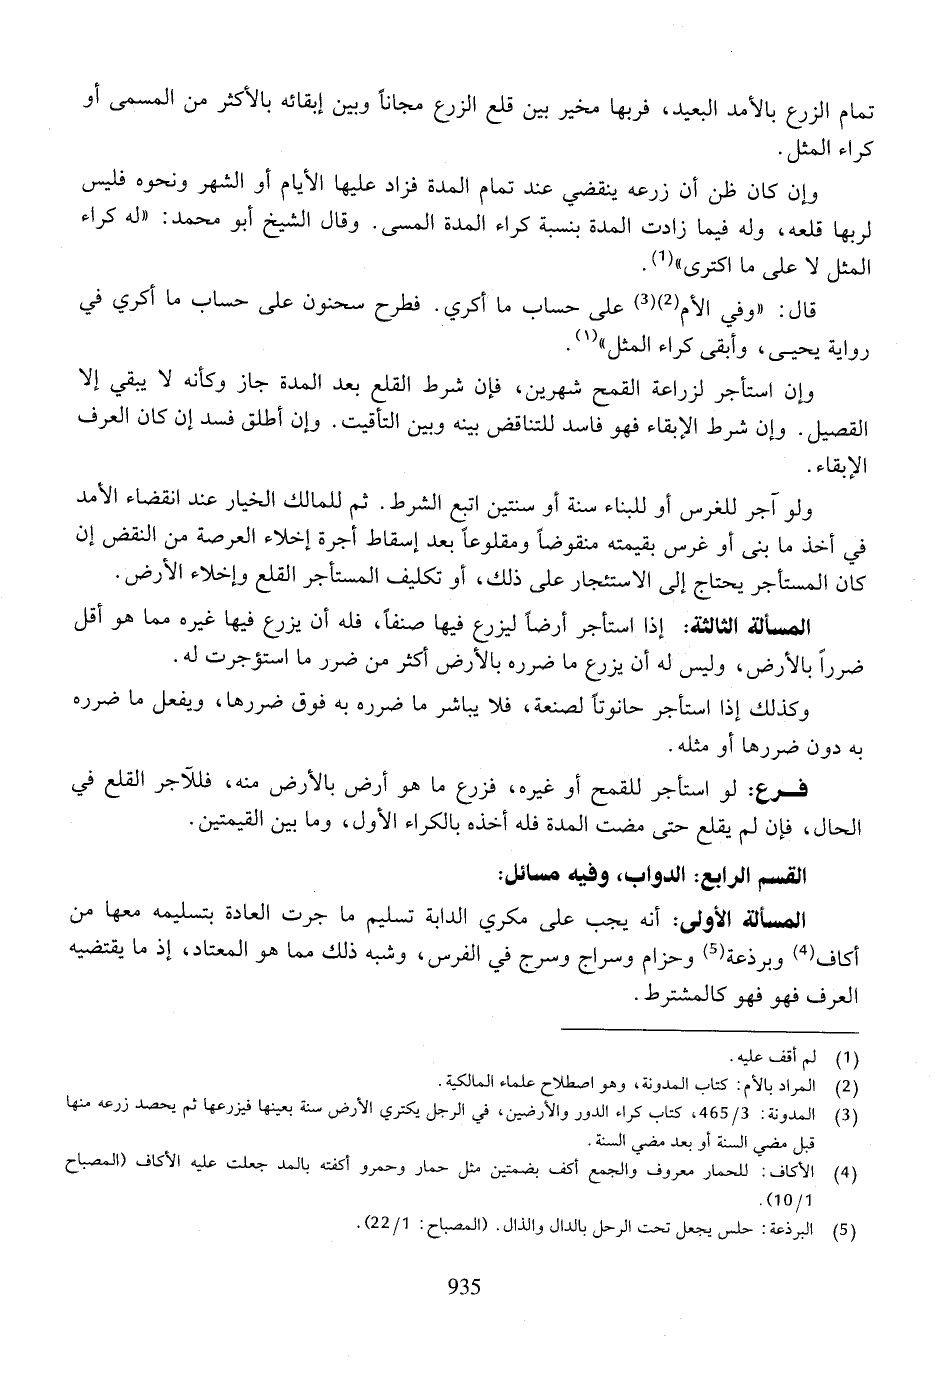 تمام الزرع بالأمد البعيد، فربها مخير بين قلع الزرع مجاناً وبين إبقائه بالأكثر من المسمى أو
كراء المثل.
وإن كان ظن أن زرعه ينقضي عند تمام المدة فزاد عليها الأيام أو الشهر ونحوه فليس
لربها قلعه، وله فيما زادت المدة بنسبة كراء المدة المسى. وقال الشيخ أبو محمد: «له كراء
المثل لا على ما اكترى»(1).
قال: «وفي الأم(2)(3) على حساب ما أكري. فطرح سحنون على حساب ما أكري في
رواية يحيى، وأبقى كراء المثل»(١).
وإن استأجر لزراعة القمح شهرين، فإن شرط القلع بعد المدة جاز وكأنه لا يبقي إلا
القصيل. وإن شرط الإبقاء فهو فاسد للتناقض بينه وبين التأقيت. وإن أطلق فسد إن كان العرف
الإبقاء.
ولو آجر للغرس أو للبناء سنة أو سنتين اتبع الشرط. ثم للمالك الخيار عند انقضاء الأمد
في أخذ ما بنى أو غرس بقيمته منقوضاً ومقلوعاً بعد إسقاط أجرة إخلاء العرصة من النقض إن
كان المستأجر يحتاج إلى الاستئجار على ذلك، أو تكليف المستأجر القلع وإخلاء الأرض.
المسألة الثالثة: إذا استأجر أرضاً ليزرع فيها صنفاً، فله أن يزرع فيها غيره مما هو أقل
ضرراً بالأرض، وليس له أن يزرع ما ضرره بالأرض أكثر من ضرر ما استؤجرت له.
وكذلك إذا استأجر حانوتاً لصنعة، فلا يباشر ما ضرره به فوق ضررها، ويفعل ما ضرره
به دون ضررها أو مثله.
فـرع: لو استأجر للقمح أو غيره، فزرع ما هو أرض بالأرض منه، فللآجر القلع في
الحال، فإن لم يقلع حتى مضت المدة فله أخذه بالكراء الأول، وما بين القيمتين.
القسم الرابع: الدواب، وفيه مسائل:
المسألة الأولى: أنه يجب على مكري الدابة تسليم ما جرت العادة بتسليمه معها من
أكاف(4) وبرذعة(5) وحزام وسراج وسرج في الفرس، وشبه ذلك مما هو المعتاد، إذ ما يقتضيه
العرف فهو فهو كالمشترط.
(1) لم أقف عليه.
(2) المراد بالأم: كتاب المدونة، وهو اصطلاح علماء المالكية.
(3) المدونة: 3/465، كتاب كراء الدور والأرضين، في الرجل يكتري الأرض سنة بعينها فيزرعها ثم يحصد زرعه منها
قبل مضي السنة أو بعد مضي السنة.
(4) الأكاف: للحمار معروف والجمع أكف بضمتين مثل حمار وحمرو أكفته بالمد جعلت عليه الأكاف (المصباح
1/10).
(5) البرذعة: حلس يجعل تحت الرحل بالدال والذال. (المصباح: 1/22).
935